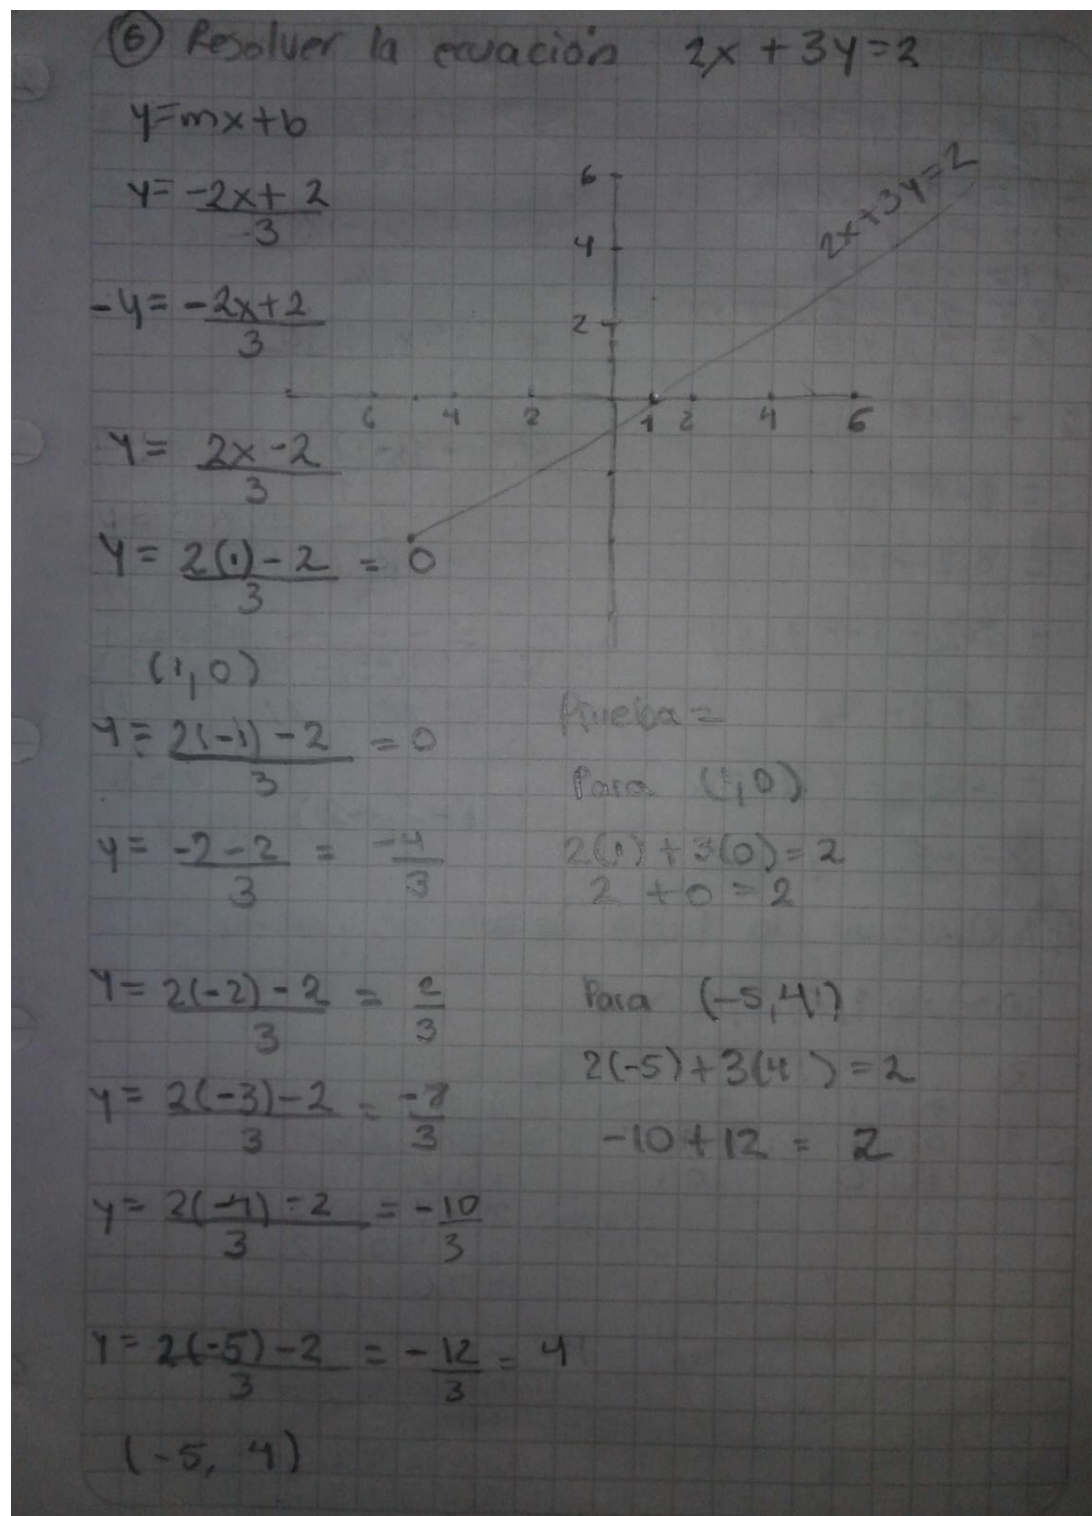 6 Resolver la ecuación 2x + 3y = 2
y = mx + b
y = -2x + 2 / 3
-y = -2x + 2 / 3
y = 2x - 2 / 3
y = 2(1) - 2 / 3 = 0
(1, 0)
y = 2(-1) - 2 / 3 = 0
y = -2 - 2 / 3 = -4 / 3
y = 2(-2) - 2 / 3 = 2 / 3
y = 2(-3) - 2 / 3 = -8 / 3
y = 2(-4) - 2 / 3 = -10 / 3
y = 2(-5) - 2 / 3 = -12 / 3 = 4
(-5, 4)
2x + 3y = 2
6
4
2
6 4 2 1 2 4 6
Prueba =
Para (1, 0)
2(1) + 3(0) = 2
2 + 0 = 2
Para (-5, 4)
2(-5) + 3(4) = 2
-10 + 12 = 2